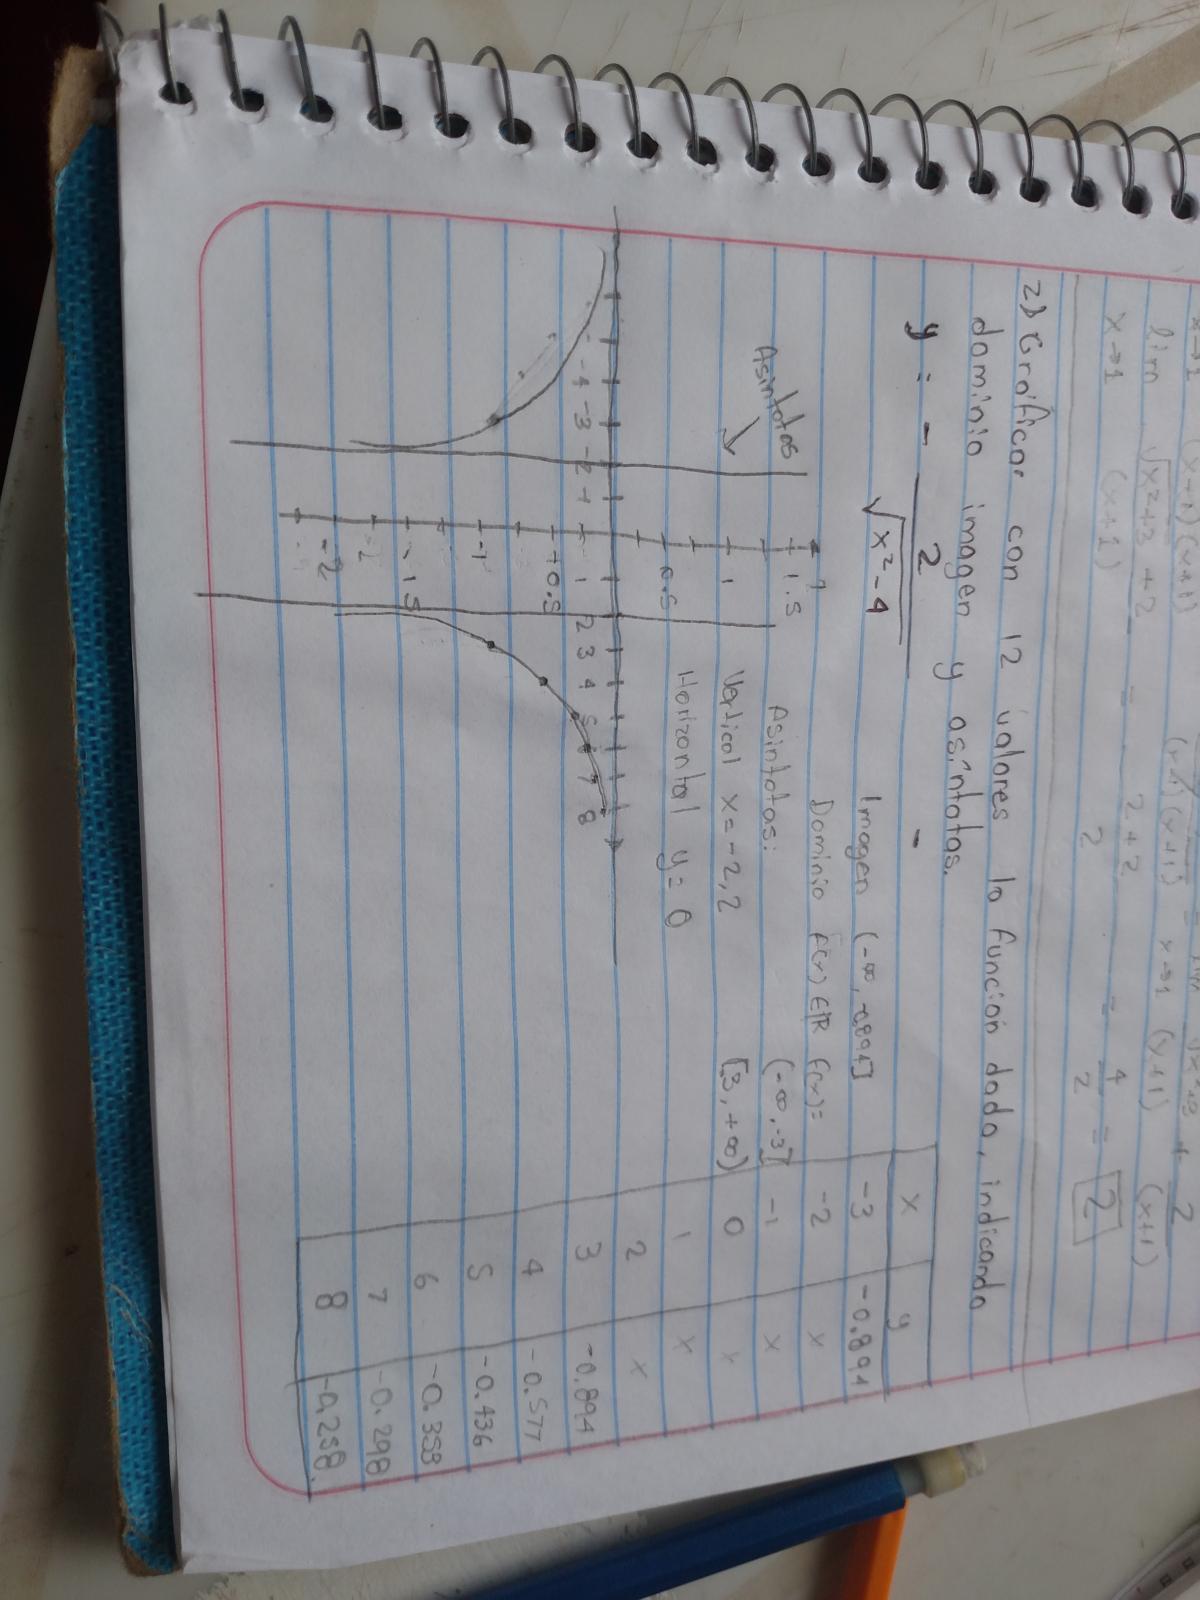 lim √x²+3 + 2 = 2+2 = 4 = 2
x→1 (x+1) 2 2
2) Graficar con 12 valores la función dada, indicando
dominio imagen y asíntotas.
y = - 2
√x²-4
Imagen (-∞, -0.894]
Dominio f(x) ∈ ℝ f(x)=
Asintotas: (-∞, -3]
Vertical x = -2, 2 [3, +∞)
Horizontal y = 0
Asintotas
1.5
1
0.5
-4 -3 -2 -1 1 2 3 4 5 6 7 8
-0.5
-1
-1.5
-2
-2
x y
-3 -0.894
-2 x
-1 x
0 x
1 x
2 x
3 -0.894
4 -0.577
5 -0.436
6 -0.353
7 -0.298
8 -0.258